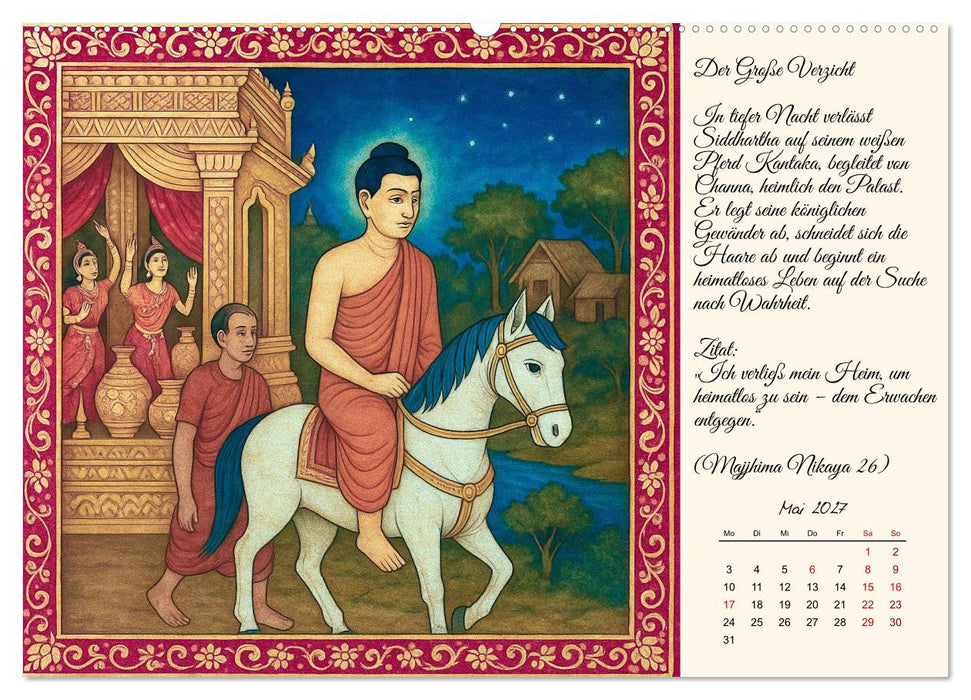 Der Große Verzicht
In tiefer Nacht verlässt
Siddhartha auf seinem weißen
Pferd Kantaka, begleitet von
Channa, heimlich den Palast.
Er legt seine königlichen
Gewänder ab, schneidet sich die
Haare ab und beginnt ein
heimatloses Leben auf der Suche
nach Wahrheit.
Zitat:
"Ich verließ mein Heim, um
heimatlos zu sein – dem Erwachen
entgegen."
(Majjhima Nikaya 26)
Mai 2027
Mo Di Mi Do Fr Sa So
1 2
3 4 5 6 7 8 9
10 11 12 13 14 15 16
17 18 19 20 21 22 23
24 25 26 27 28 29 30
31